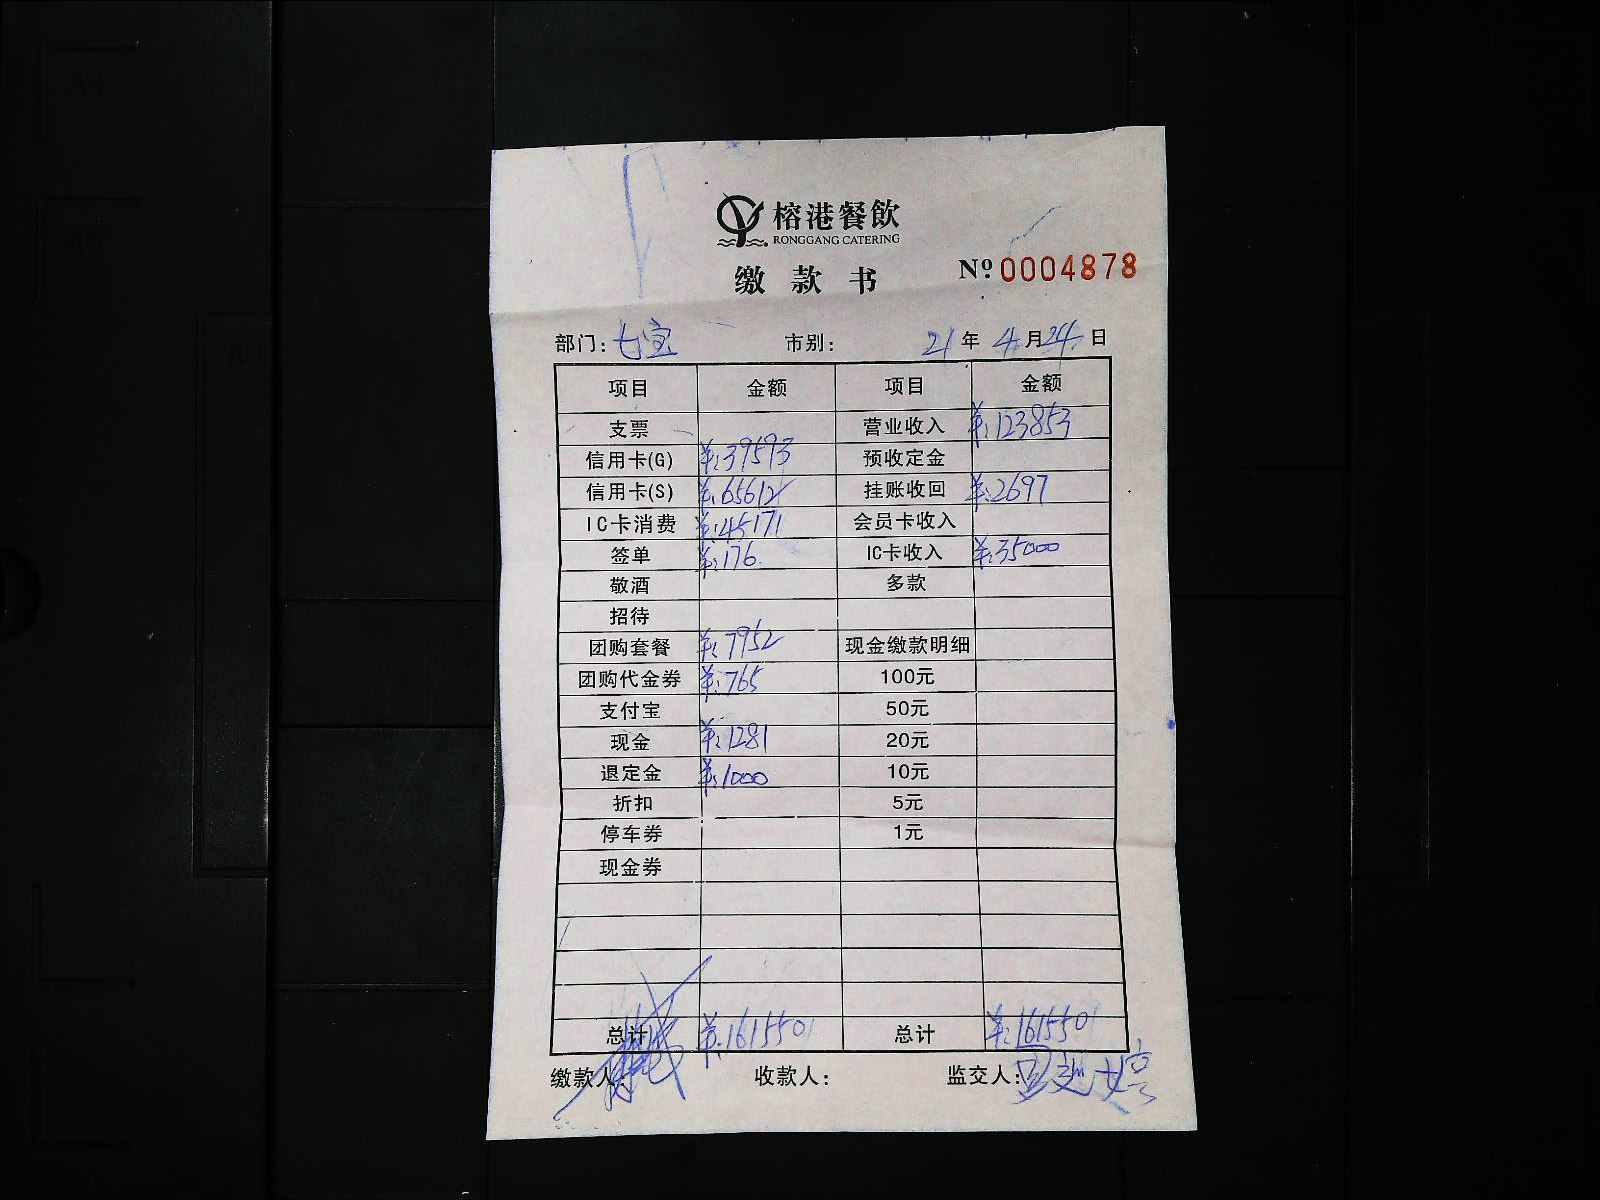 榕港餐飲
RONGGANG CATERING
缴款书 № 0004878
部门: 七宝 市别: 21年4月24日
项目 金额 项目 金额
支票 营业收入 ¥:123853
信用卡(G) ¥:39593 预收定金
信用卡(S) ¥:65612 挂账收回 ¥:2697
IC卡消费 ¥:45171 会员卡收入
签单 ¥:176. IC卡收入 ¥:35000
敬酒 多款
招待
团购套餐 ¥:7952 现金缴款明细
团购代金券 ¥:765 100元
支付宝 50元
现金 ¥:1281 20元
退定金 ¥:1000 10元
折扣 5元
停车券 1元
现金券
总计 ¥:161550 总计 ¥:161550
缴款人: 收款人: 监交人: